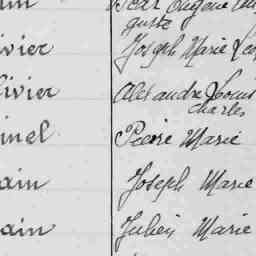 Eugène
guste
ivier Joseph Marie
livier Alexandre Louis
Charles
inel Pierre Marie
ain Joseph Marie
ain Julien Marie